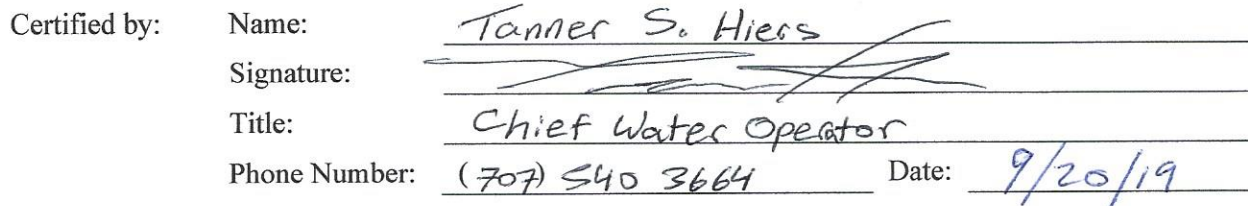 Certified by: Name: Tanner S. Hiers
Signature:
Title: Chief Water Operator
Phone Number: (707) 540 3664 Date: 9/20/19